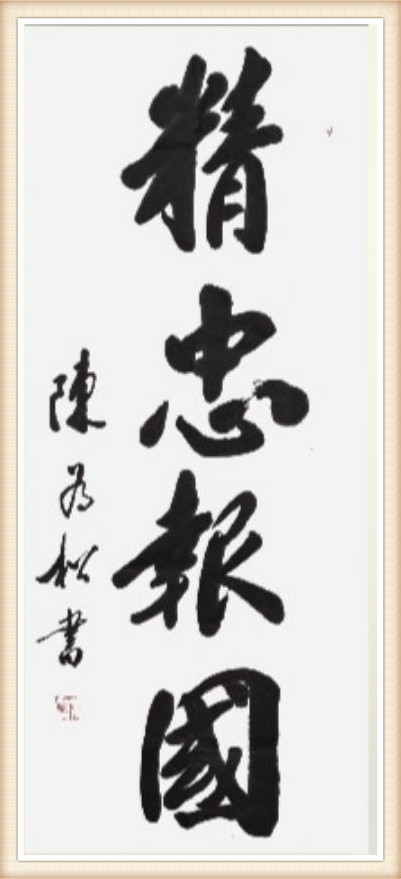 精忠報國
陳為松書